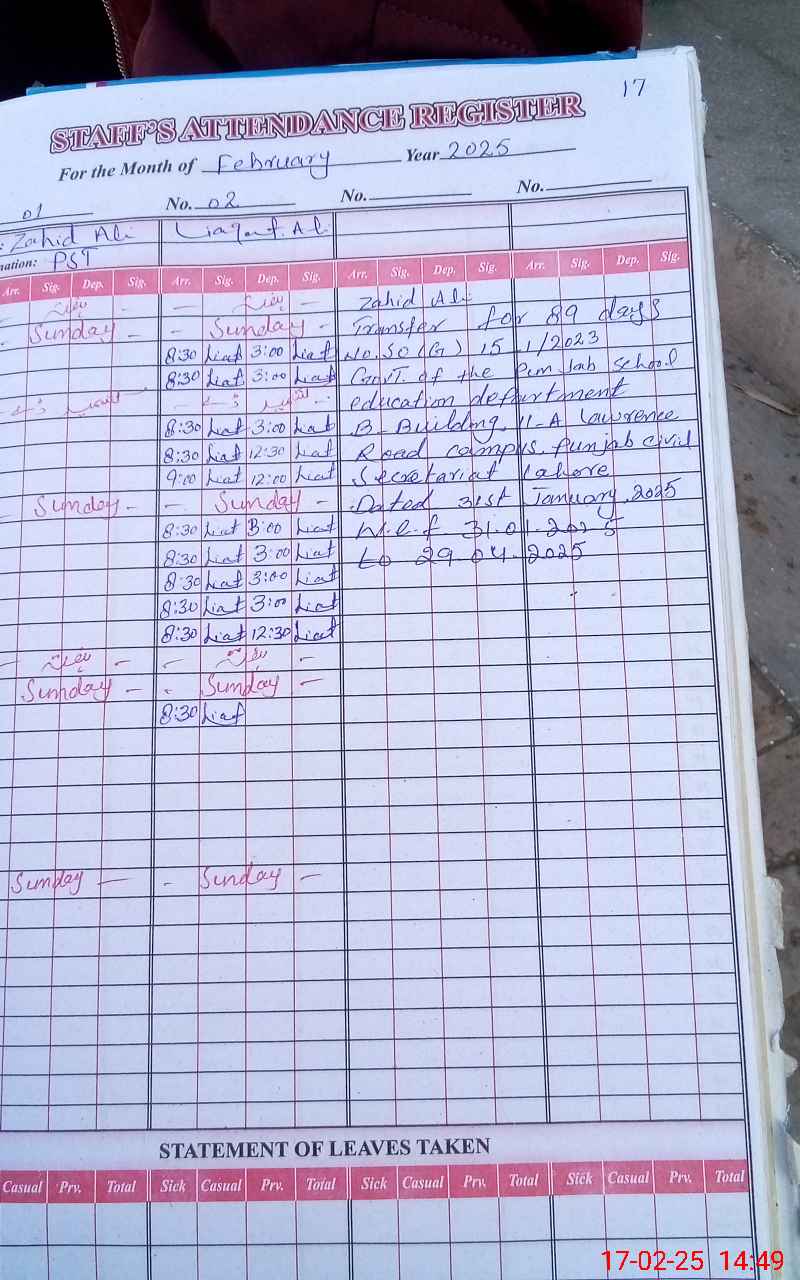 17
STAFF'S ATTENDANCE REGISTER
For the Month of February Year 2025
01 No. 02 No. No.
: Zahid Ali Liaqat Ali
nation: PST
Arr. Sig. Dep. Sig. Arr. Sig. Dep. Sig. Arr. Sig. Dep. Sig. Arr. Sig. Dep. Sig.
— ہفتہ — — ہفتہ — Zahid Ali
Sunday - - Sunday - Transfer for 89 days
8:30 Liat 3:00 Liat No. SO (G) 15 1/2023
8:30 Liat 3:00 Liat Govt. of the Punjab School
education department
8:30 Liat 3:00 Liat B-Building, 11-A Lawrence
8:30 Liat 12:30 Liat Road campus, Punjab civil
9:00 Liat 12:00 Liat Secretariat Lahore
Sunday - - Sunday - Dated 31st January, 2025
8:30 Liat 3:00 Liat W.e.f 31.01.2025
8:30 Liat 3:00 Liat to 29.04.2025
8:30 Liat 3:00 Liat
8:30 Liat 3:00 Liat
8:30 Liat 12:30 Liat
— ہفتہ — — ہفتہ —
Sunday - - Sunday —
8:30 Liat
Sunday — - Sunday —
STATEMENT OF LEAVES TAKEN
Casual Prv. Total Sick Casual Prv. Total Sick Casual Prv. Total Sick Casual Prv. Total
17-02-25 14:49